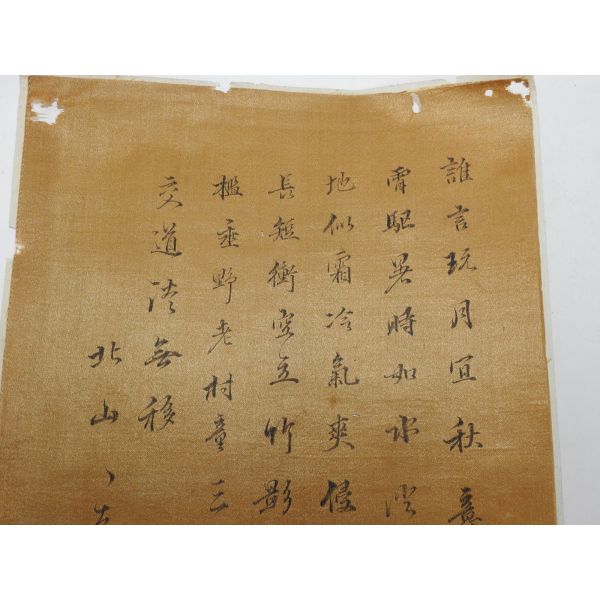 誰言玩月宜秋意
宵駈暑時如水澄
地似霜冷氣爽侵
長短衡空立竹影
檻垂野老村童三
交道淺無移
北山